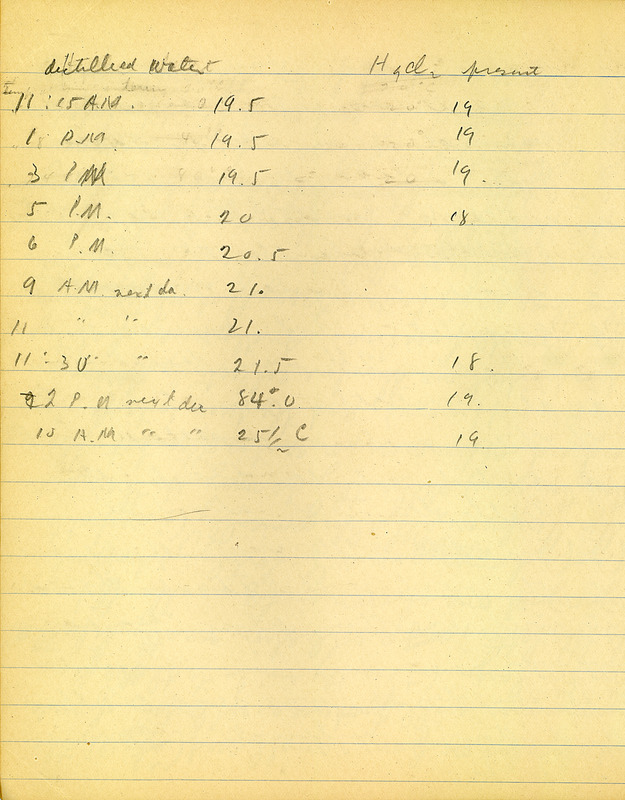 distilled Water HgCl2 present
11:15 A.M. 19.5 19
1 P.M. 19.5 19
3 P.M 19.5 19.
5 P.M. 20 18
6 P.M. 20.5
9 A.M. next da. 21.
11 " " 21.
11:30 " " 21.5 18.
2 P.M next da 84°.0 19.
10 A.M " " 25½ C 19